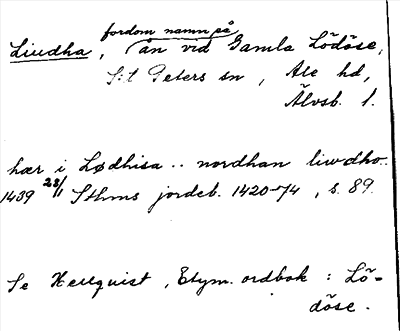 fordom namn på
Liudha, ån vid Gamla Lödöse,
S:t Peters sn, Ale hd,
Älvsb. l.
hær i Lødhisa .. nordhan liwdho..
1439 23/1 Sthms jordeb. 1420-74, s. 89.
Se Hellquist, Etym. ordbok: Lö-
döse.